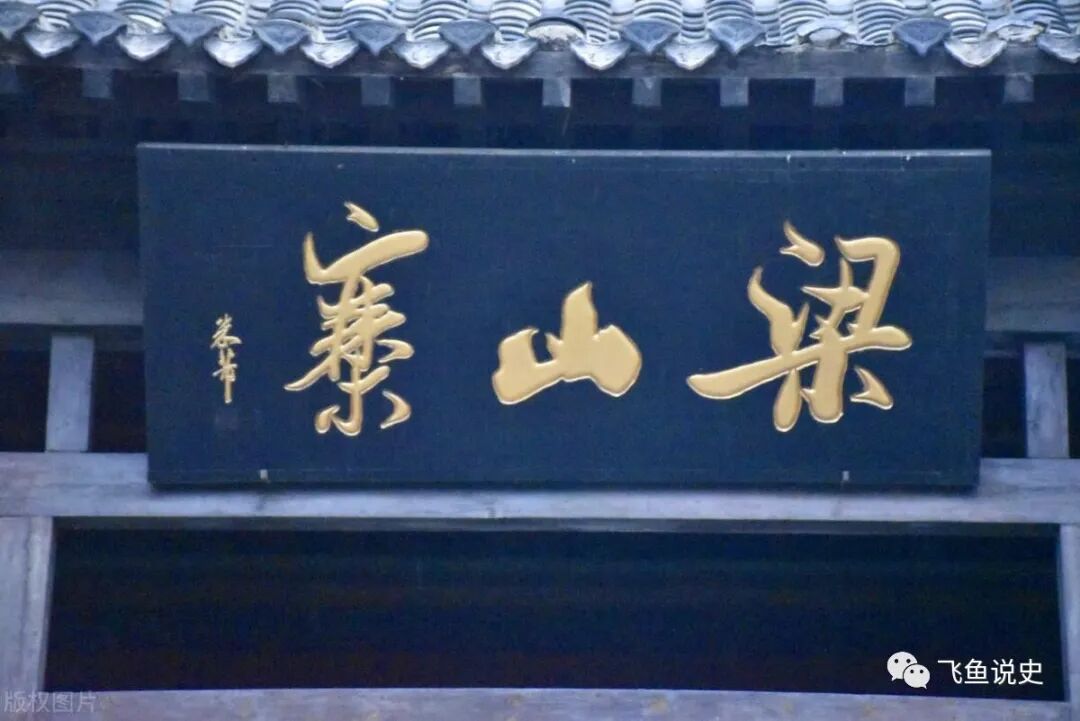 梁山寨
米芾
飞鱼说史
版权图片